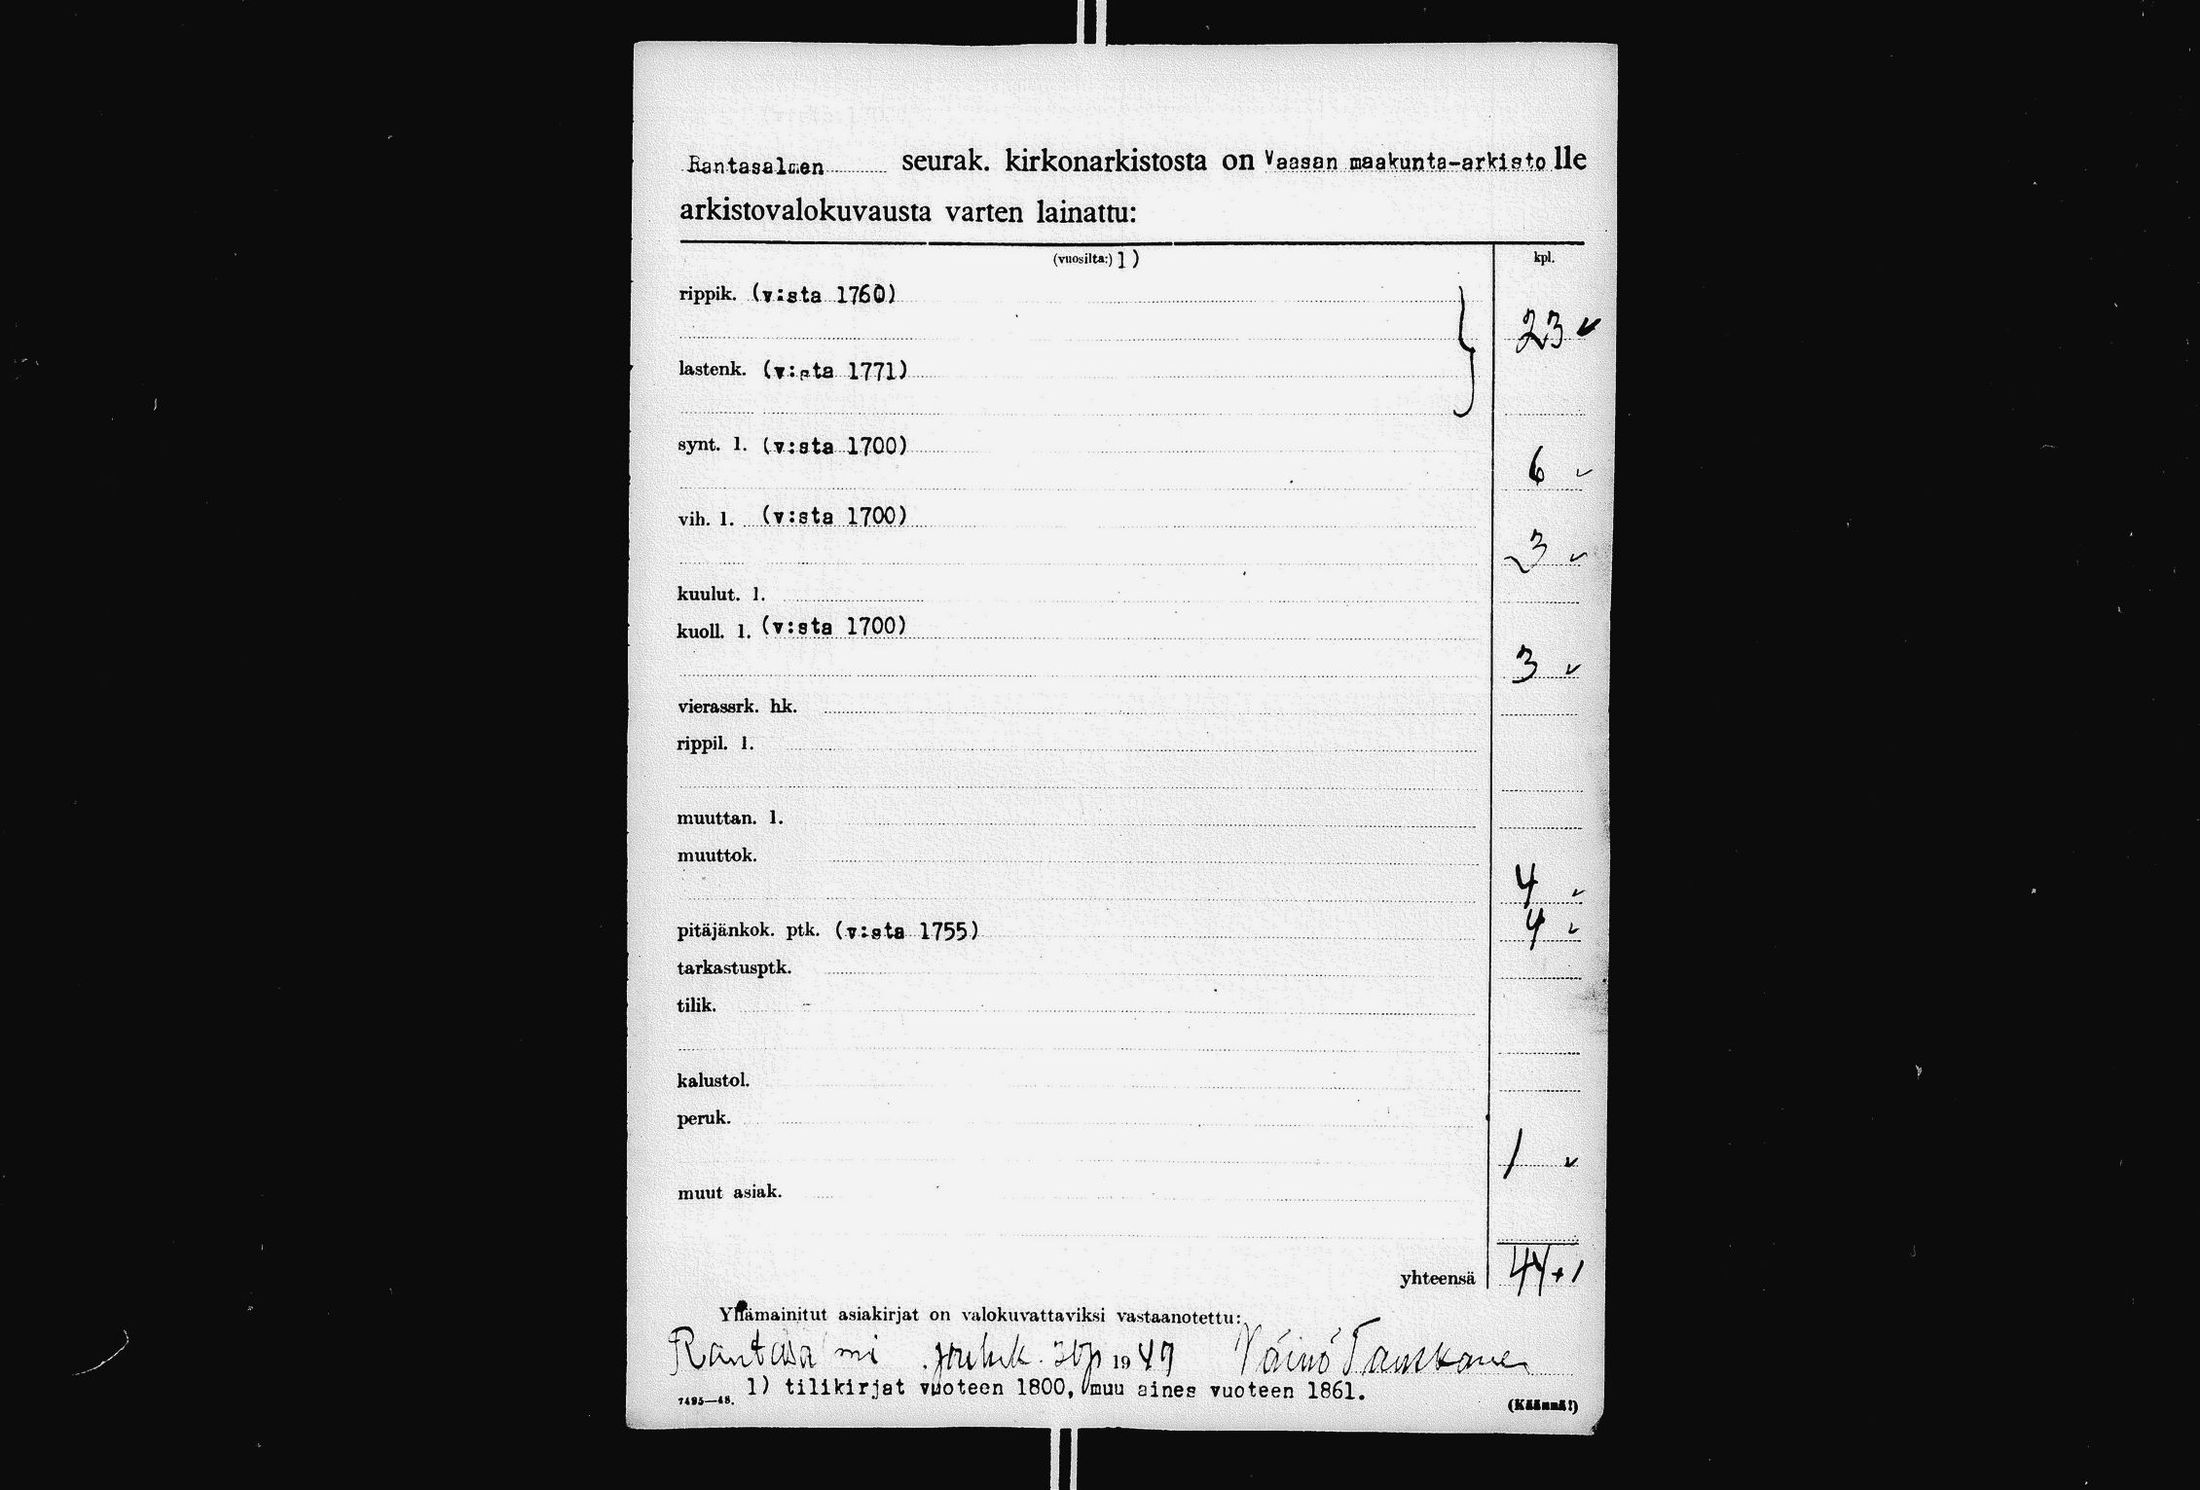 Rantasalmen seurak. kirkonarkistosta on Vaasan maakunta-arkisto lle
arkistovalokuvausta varten lainattu:
(vuosilta:) 1) kpl.
rippik. (v:sta 1760)
23 ✓
lastenk. (v:sta 1771)
synt. l. (v:sta 1700)
6 ✓
vih. l. (v:sta 1700)
3 ✓
kuulut. l.
kuoll. l. (v:sta 1700)
3 ✓
vierassrk. hk.
rippil. l.
muuttan. l.
muuttok.
4 ✓
pitäjänkok. ptk. (v:sta 1755) 4 ✓
tarkastusptk.
tilik.
kalustol.
peruk.
1 ✓
muut asiak.
yhteensä 44+1
Yllämainitut asiakirjat on valokuvattaviksi vastaanotettu:
Rantasalmi jouluk. 1949 Väinö Tanskanen
1) tilikirjat vuoteen 1800, muu aines vuoteen 1861.
7495—48. (Käännä!)